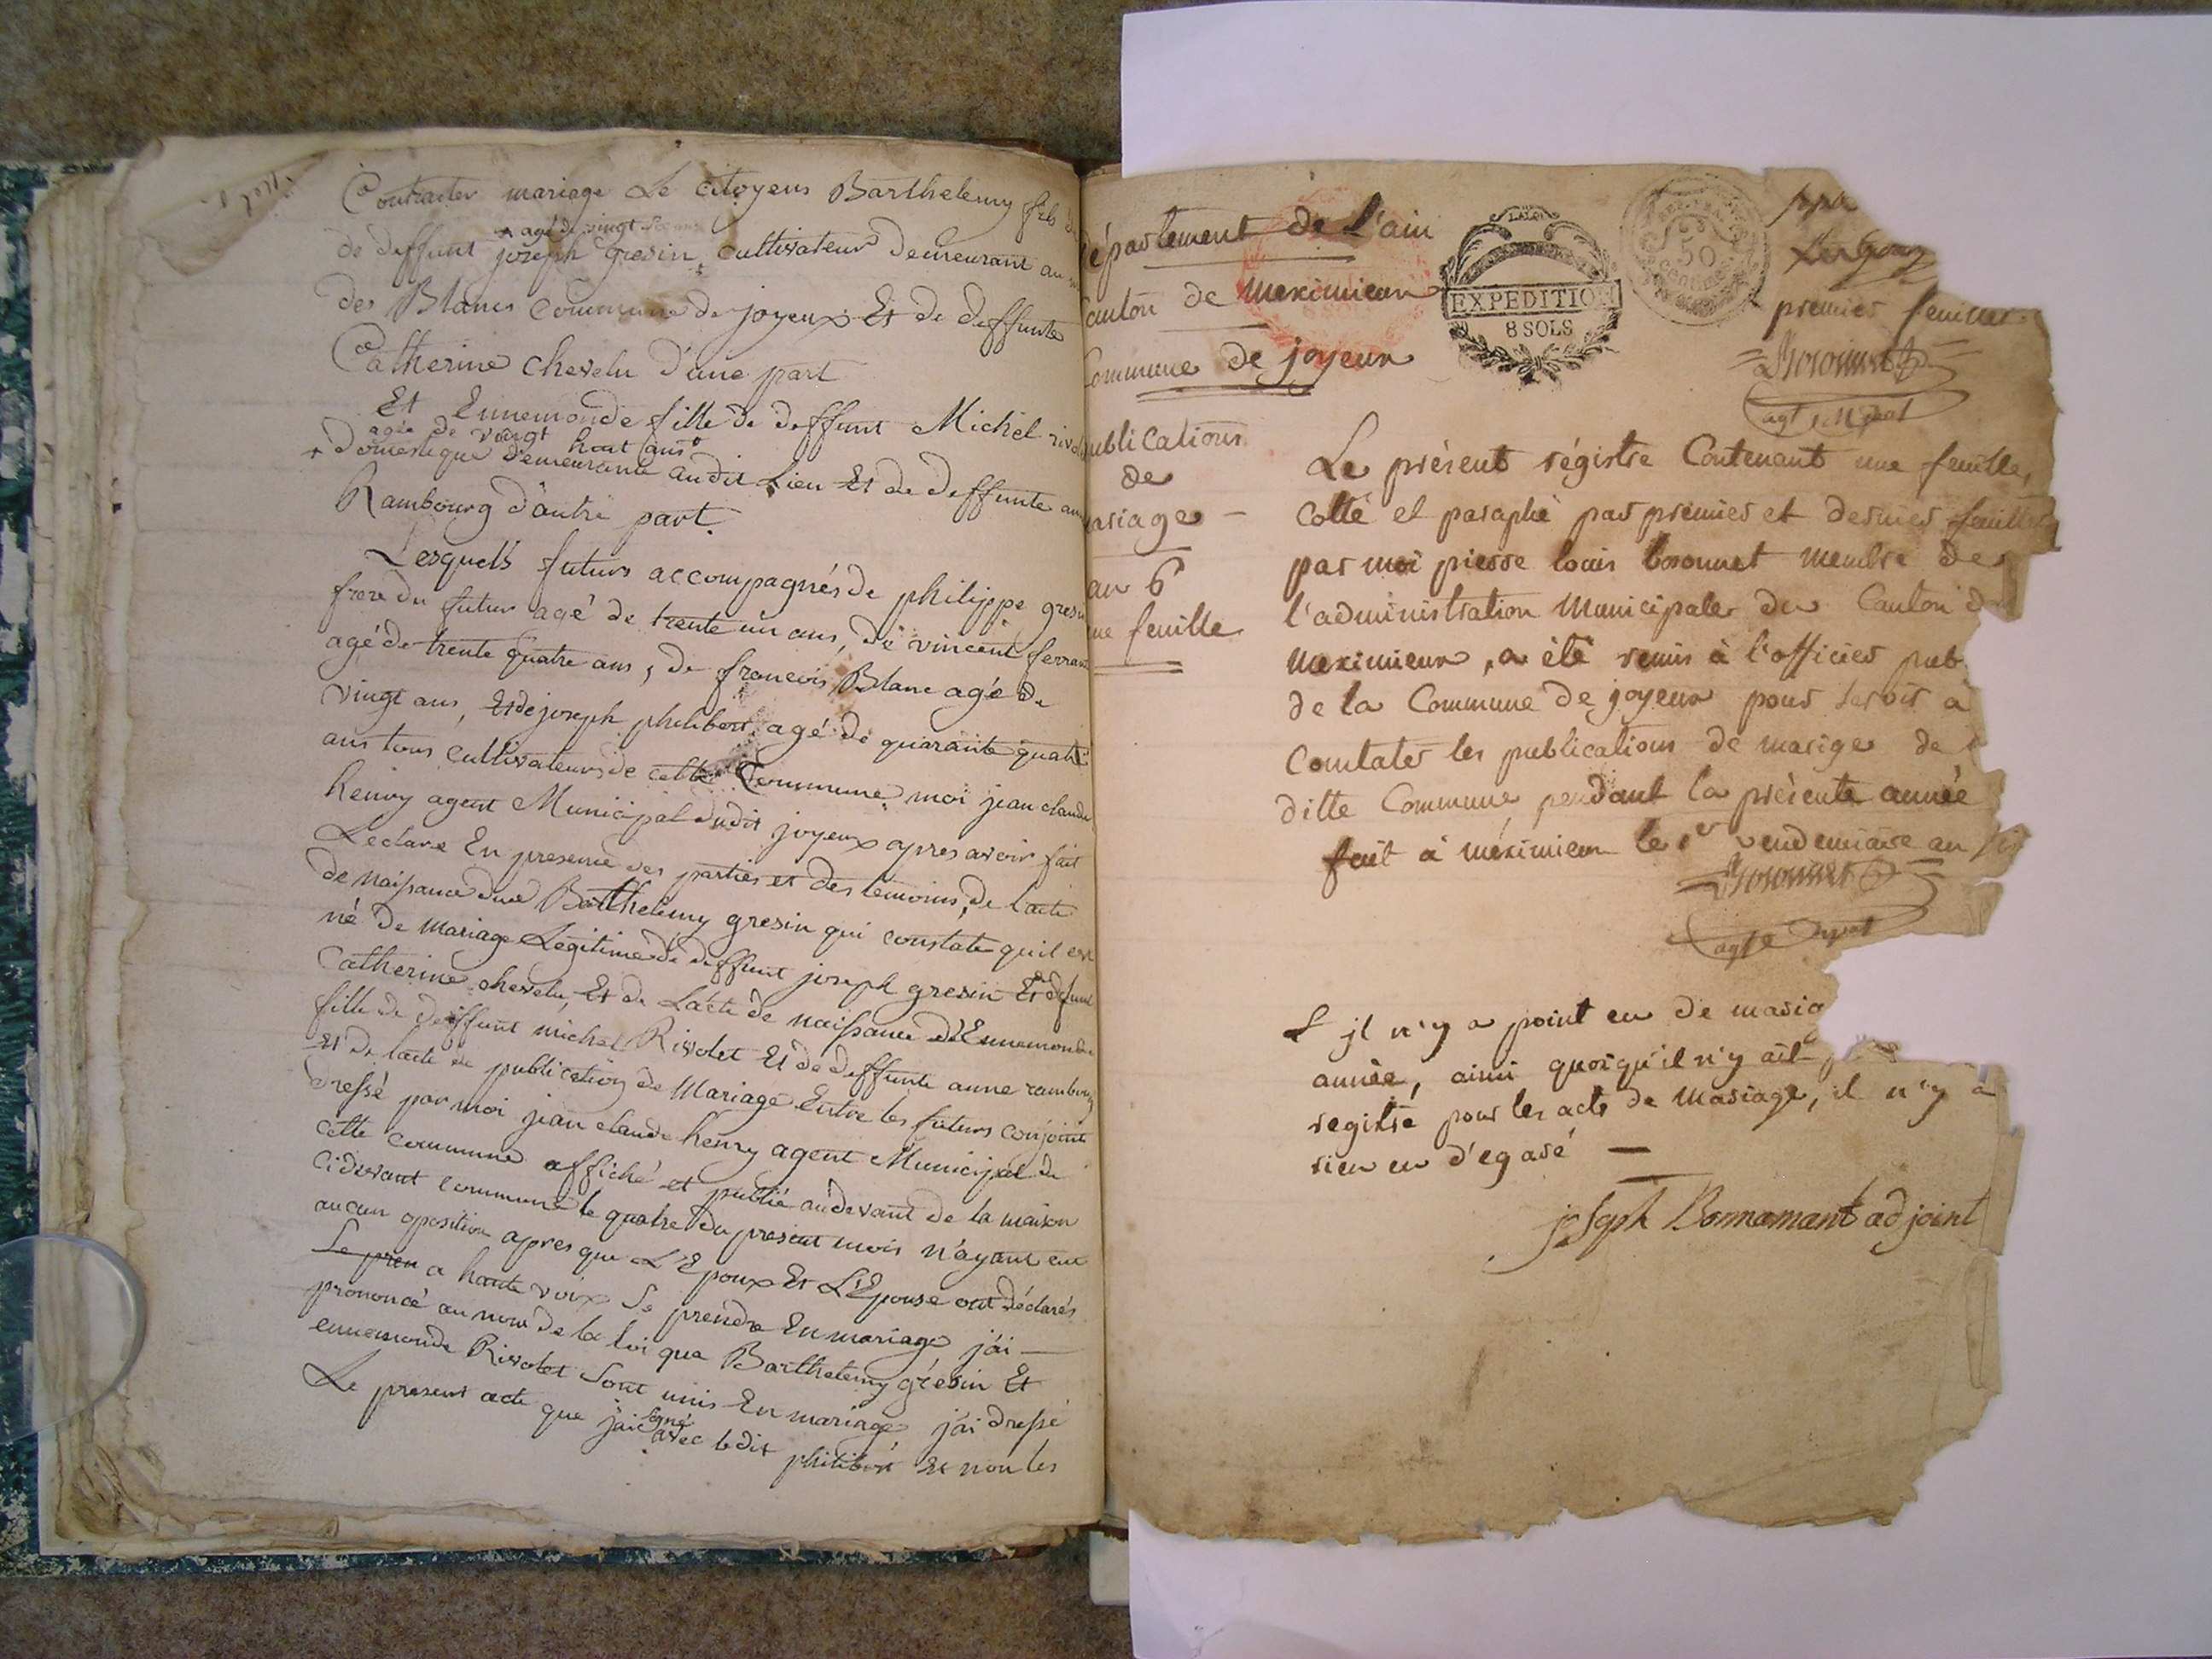 Contracter mariage Le citoyens Barthelemy fils
+ agé de vingt
de deffunt joseph gresin, cultivateur demeurant au
des Blancs Commune de joyeux Et de deffunte
Catherine chevelu d'une part
Et Ennemonde fille de deffunt Michel
agée de vingt huit ans
+ domestique demeurante audit Lieu Et de deffunte
Rambourg d'autre part.
Lesquels futurs accompagnés de philippe gresin
frere du futur agé de trente un ans, de vincent
agé de trente quatre ans, de francois Blanc agé de
vingt ans, Et de joseph philibert agé de quarante quatre
ans tous cultivateurs de cette Commune moi jean claude
henry agent Municipal dudit joyeux apres avoir fait
Lecture En presence des parties et des temoins, de l'acte
de naissance de Barthelemy gresin qui constate quil est
né de mariage Legitime de deffunt joseph gresin Et
Catherine chevelu, Et de L'acte de naissance d'Ennemonde
fille de deffunt michel Rivolet Et de deffunte anne rambourg
Et de lacte de publication de Mariage Entre les futurs conjoints
dressé par moi jean claude henry agent Municipal de
cette commune affiché et publié audevant de la maison
cidevant commune le quatre du present mois n'ayant eue
aucun oposition apres que L'Epoux Et L'Epouse ont déclarés
a haute voix Se prendre En mariage j'ai —
prononcé au nom de la loi que Barthelemy grésin Et
ennemonde Rivolet Sont unis En mariage j'ai dressé
signé
Le present acte que j'ai avec ledit philibert Et non les
épartement de l'ain
anton de meximieux
ommune de joyeux
LA LOI
EXPEDITION
8 SOLS
50
CENTIMES
premier
Boronnet
agt Mpal
ublications
de
ariage —
an 6
ne feuille
Le présent régistre Contenant une feuille,
cotté et paraphé par premier et dernier feuillet
par moi pierre louis boronnet membre de
l'administration Municipale du Canton
meximieux, a été remis à l'officier pub
de la Commune de joyeux pour servir a
Contater les publications de marige de
ditte Commune pendant la présente année
fait à méximieux le 1er vendemiaire an
Boronnet
agt
il n'y a point eu de maria
année, ainsi quoiqu'il n'y ait
registre pour les acts de Mariage, il n'y a
rien eu d'egaré —
joseph Bonnamant adjoint